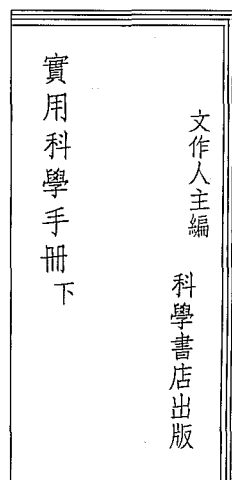 文作人主編
科學書店出版
實用科學手冊 下